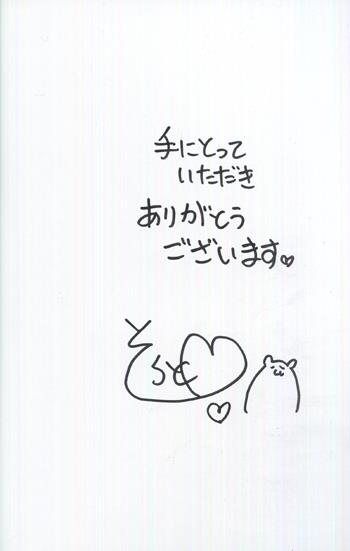 手にとって
いただき
ありがとう
ございます♡
そらと